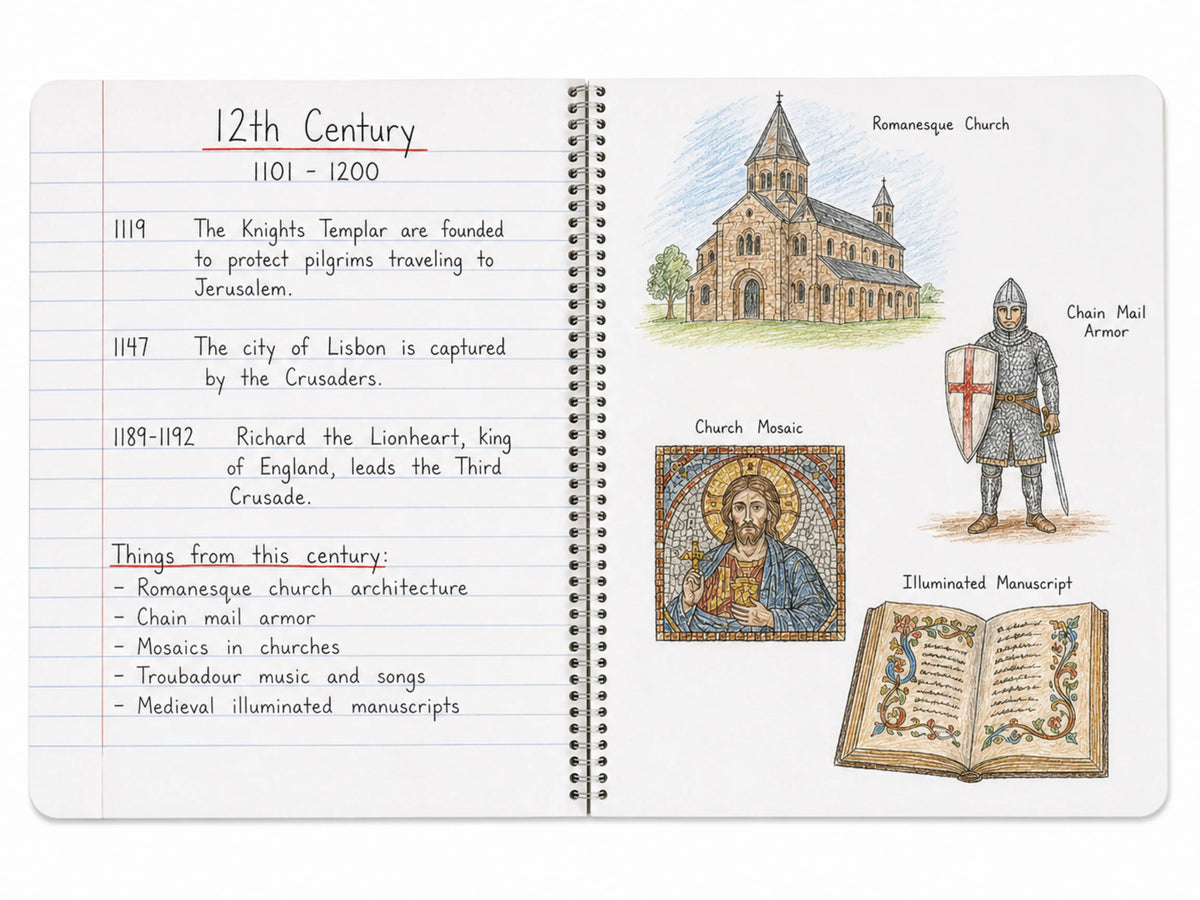 12th Century
1101 - 1200
1119 The Knights Templar are founded
to protect pilgrims traveling to
Jerusalem.
1147 The city of Lisbon is captured
by the Crusaders.
1189-1192 Richard the Lionheart, king
of England, leads the Third
Crusade.
Things from this century:
- Romanesque church architecture
- Chain mail armor
- Mosaics in churches
- Troubadour music and songs
- Medieval illuminated manuscripts
Romanesque Church
Chain Mail
Armor
Church Mosaic
Illuminated Manuscript